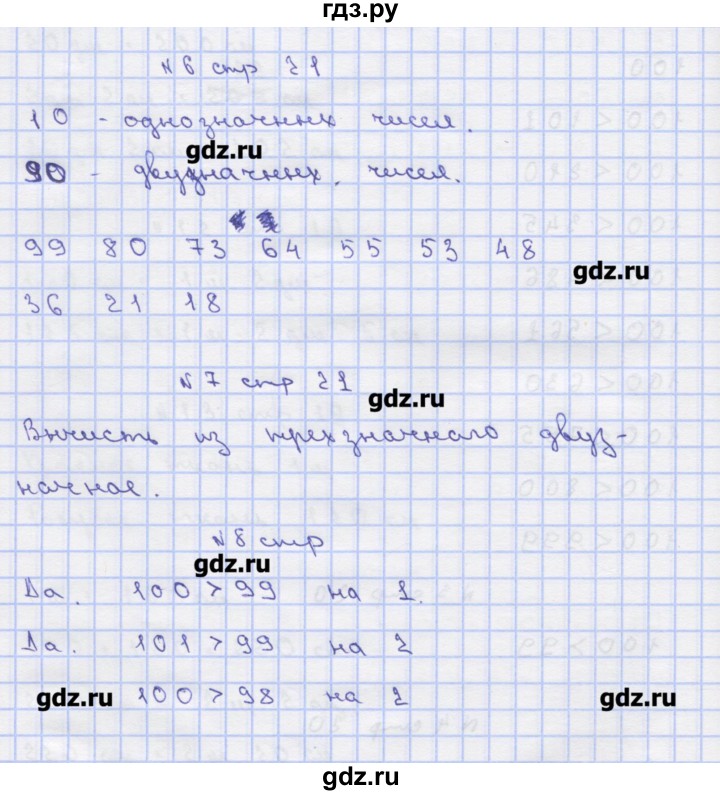 гдз.ру
№6 стр 21
10 - однозначных чисел.
gdz.ru
90 - двузначных. чисел.
99 80 73 64 55 53 48
gdz.ru
36 21 18
№7 стр 21
gdz.ru
Вычесть из трехзначного двуз-
начное.
№8 стр
gdz.ru
Да. 100 > 99 на 1.
Да. 101 > 99 на 2
gdz.ru 100 > 98 на 2 gdz.ru
gdz.ru